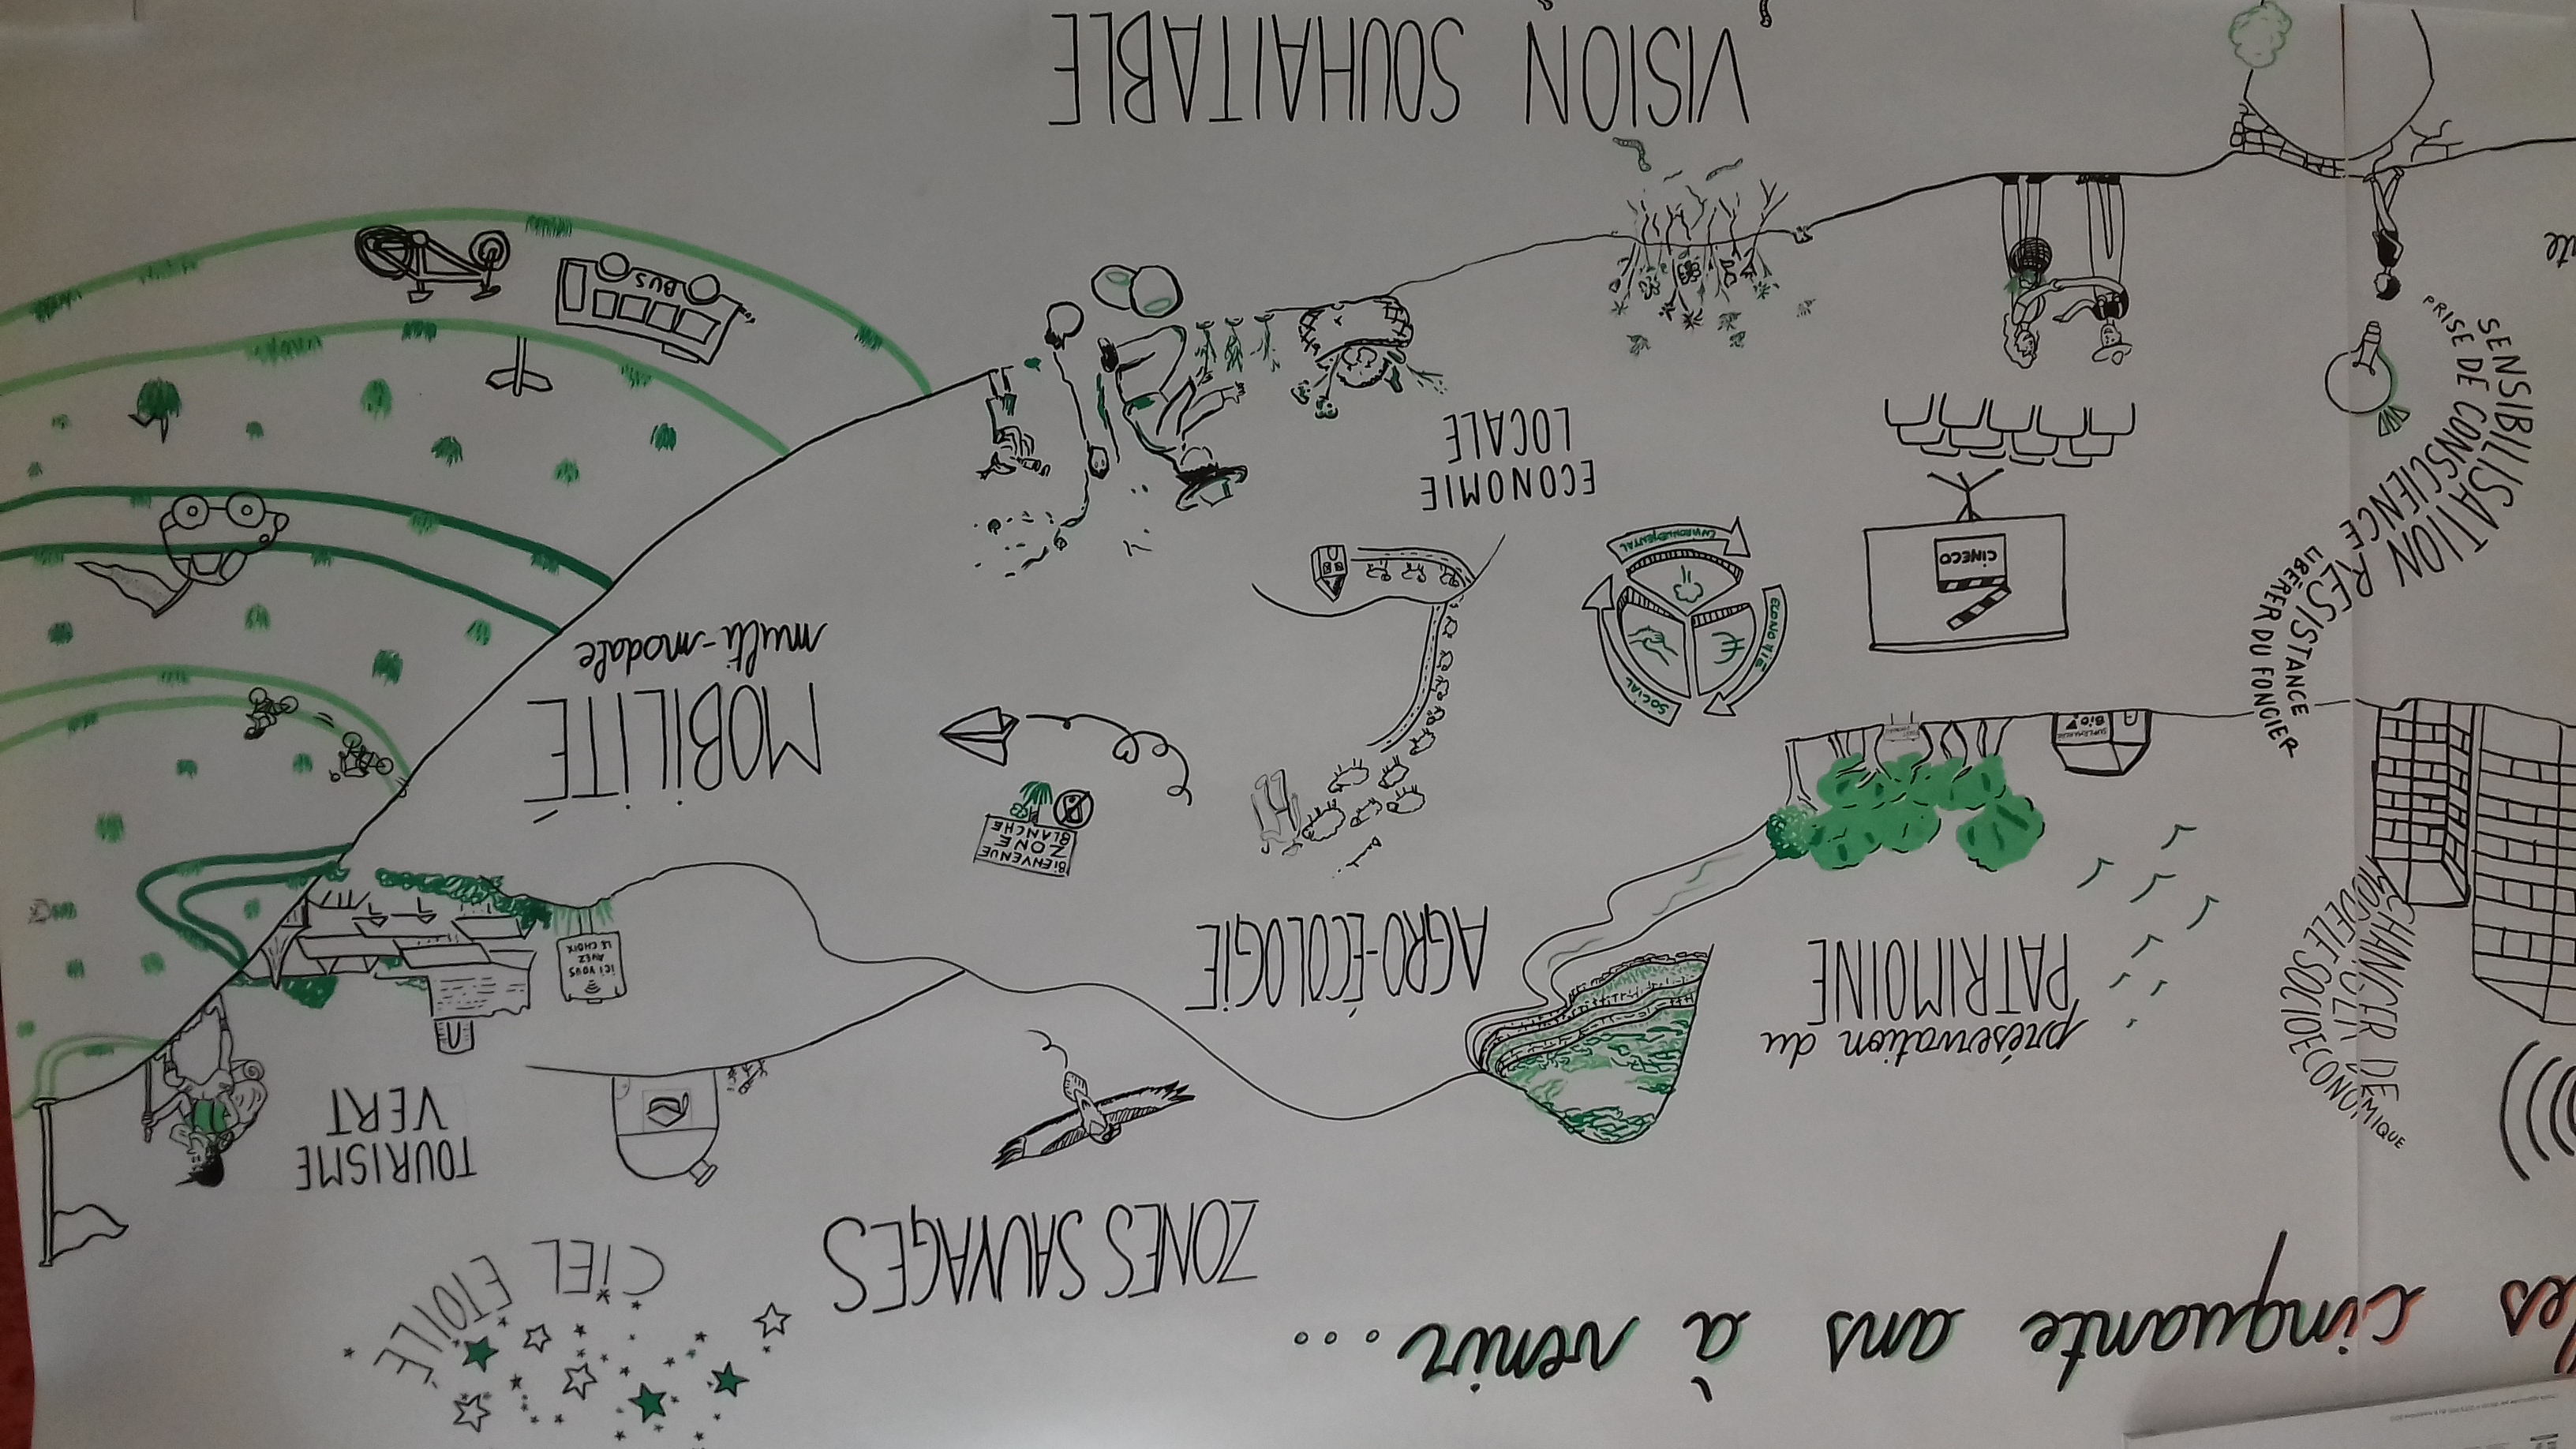 les cinquante ans à venir....
CIEL ETOILÉ
ZONES SAUVAGES
TOURISME
VERT
préservation du
PATRIMOINE
CHANGER DE
MODELE SOCIOECONOMIQUE
AGRO-ÉCOLOGIE
ici VOUS
AVEZ
LE CHOIX
BIENVENUE
ZONE
BLANCHE
SUPERMARCHÉ
BIO
MOBILITÉ
multi-modale
SOCIAL
ECONOMIE
ENVIRONNEMENTAL
CINECO
LIBÉRER DU FONCIER
RÉSISTANCE
SENSIBILISATION
PRISE DE CONSCIENCE
ECONOMIE
LOCALE
BUS
VISION SOUHAITABLE